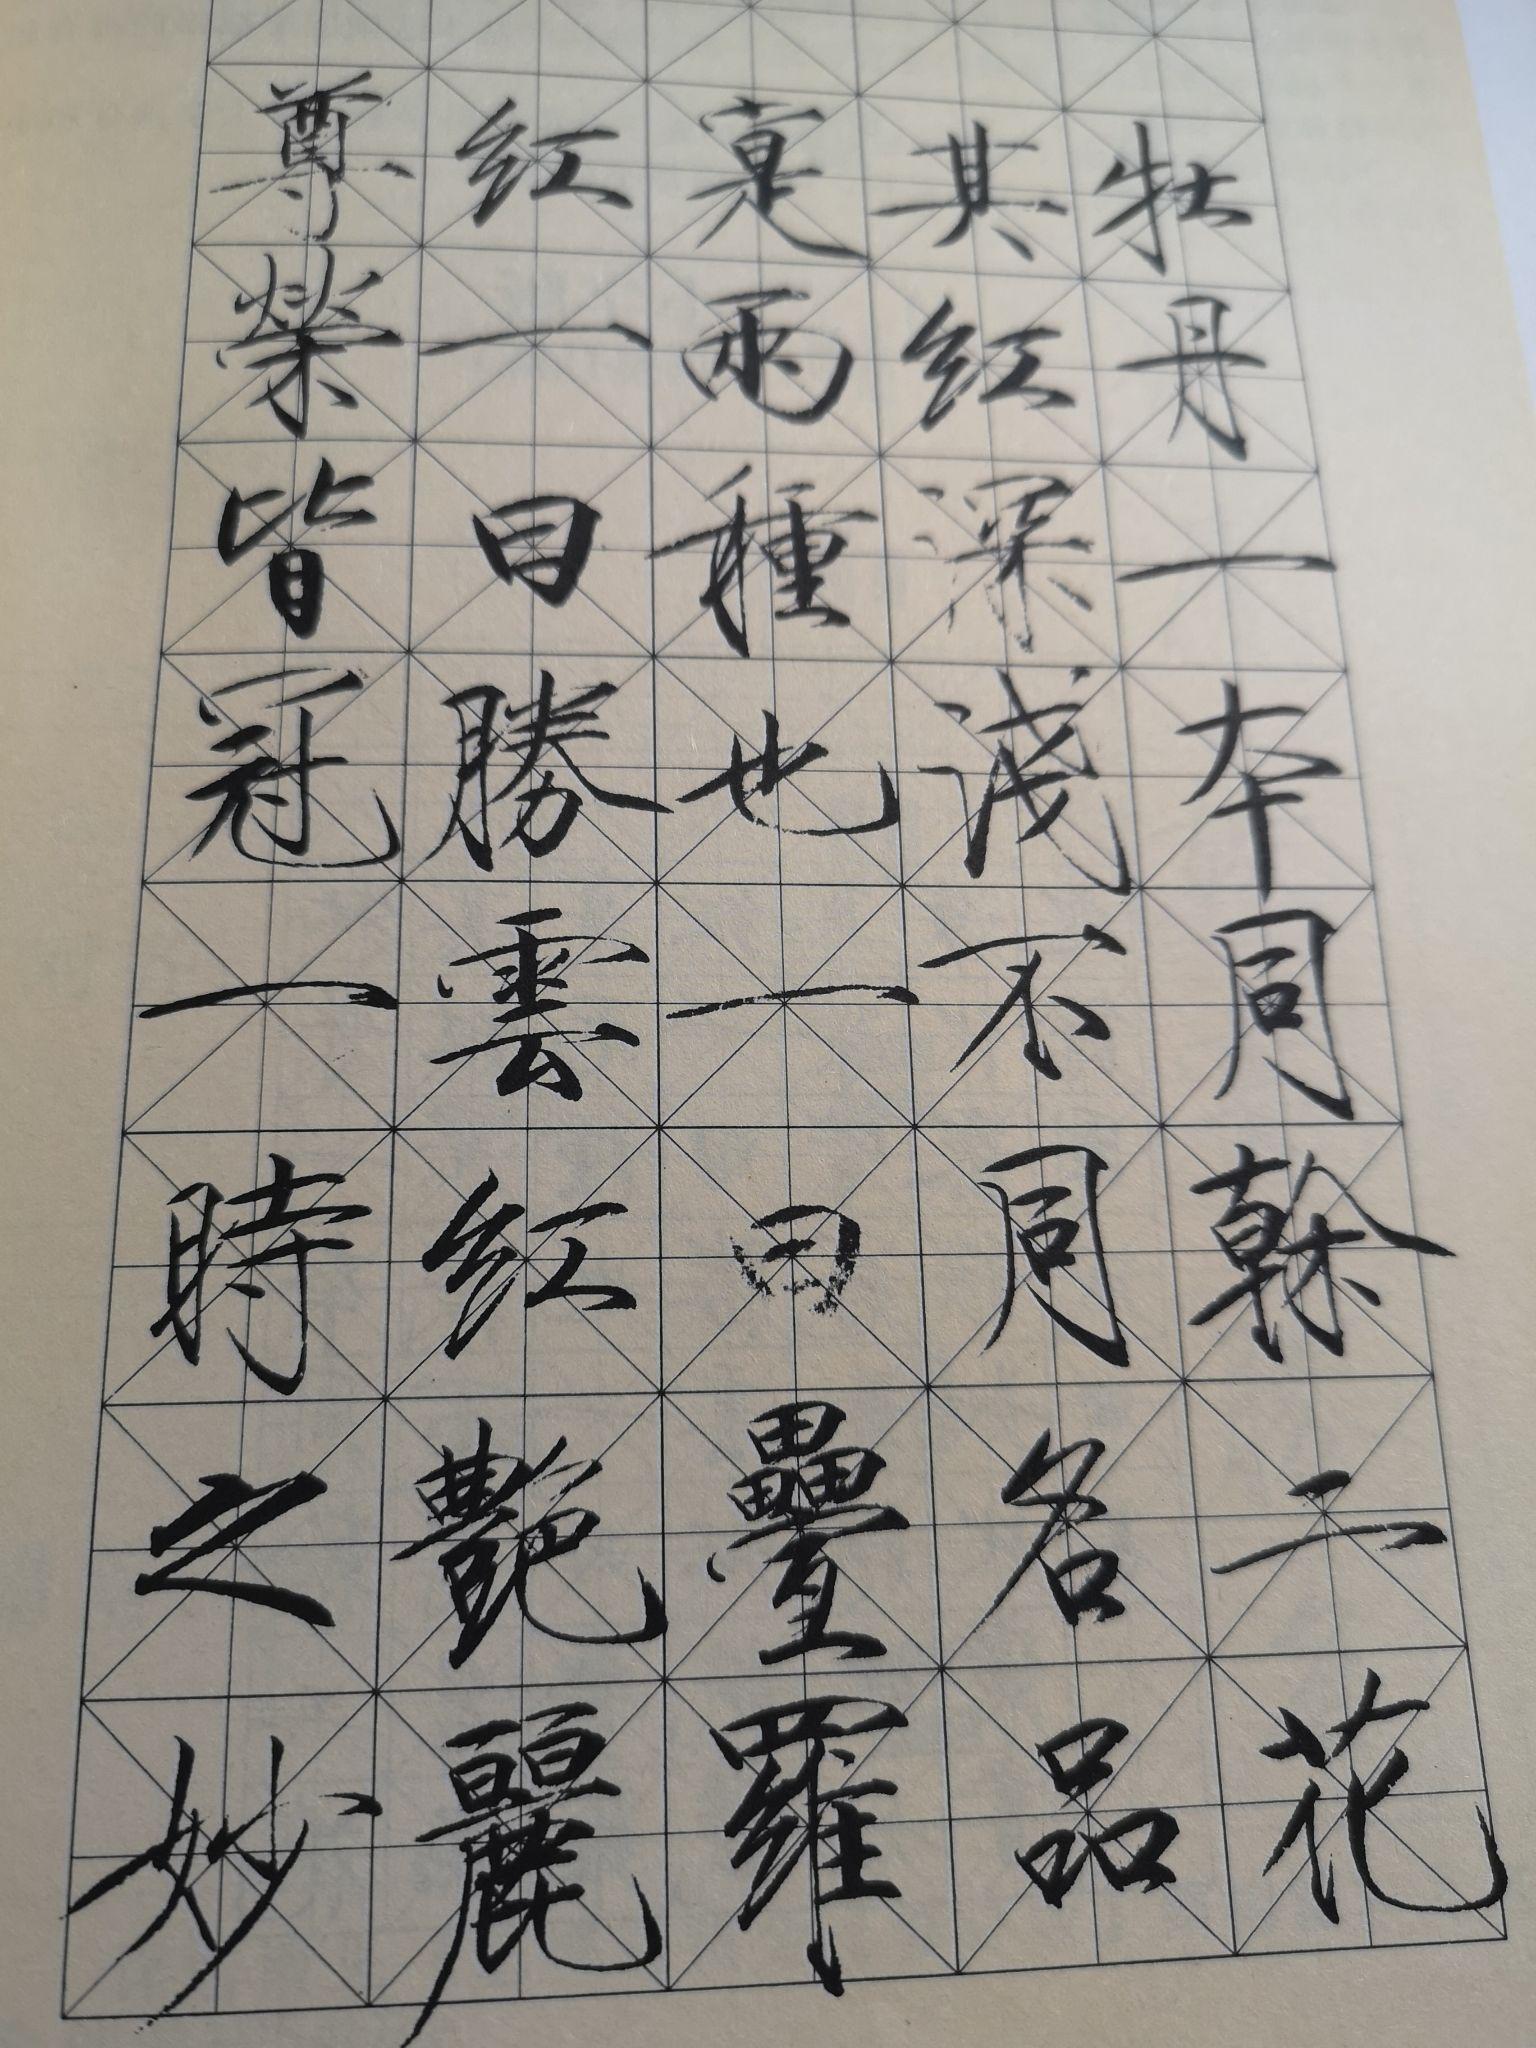 牡丹一本同幹二花
其紅深淺不同名品
寔兩種也一曰疊羅
紅一曰勝雲紅艷麗
尊榮皆冠一時之妙